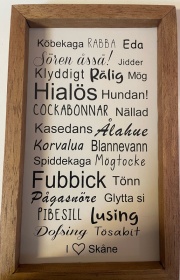 Köbekaga RABBA Eda
Sören åsså! Jidder
Klyddigt Rålig Mög
Hialös Hundan!
COCKABONNAR Nällad
Kasedans Ålahue
Korvalua Blannevann
Spiddekaga Mogtocke
Fubbick Tönn
Pågasnöre Glytta si
PIBESILL Lusing
Dofsing Tosabit
I ♡ Skåne